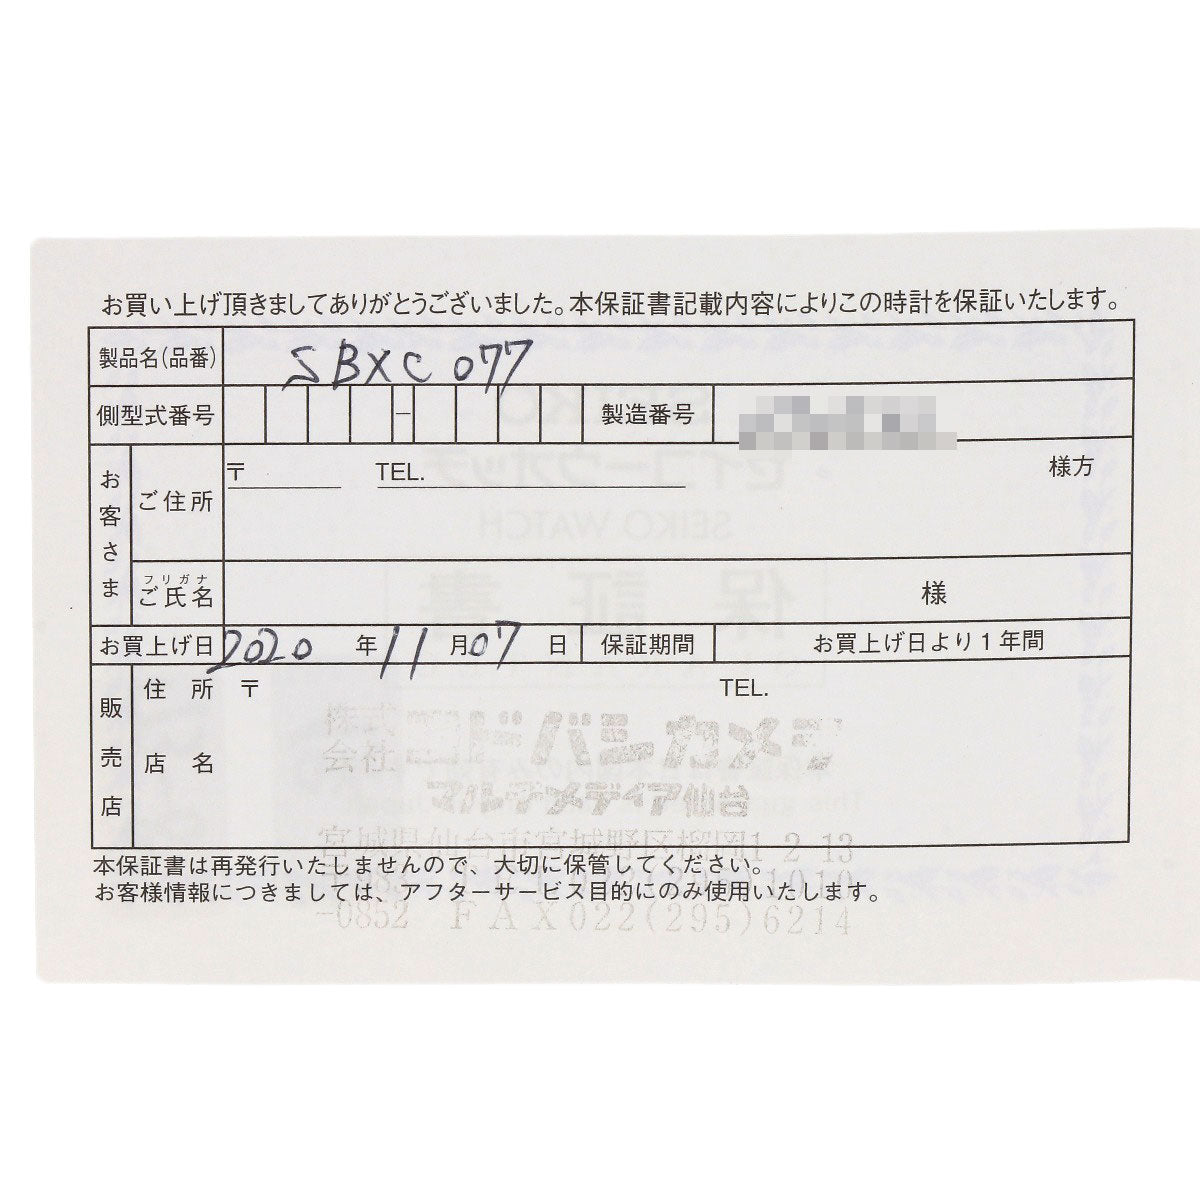 お買い上げ頂きましてありがとうございました。本保証書記載内容によりこの時計を保証いたします。
製品名(品番) SBXC 077
側型式番号 － 製造番号
お客さま
ご住所 〒 TEL. 様方
フリガナ
ご氏名 様
お買上げ日 2020 年 11 月 07 日 保証期間 お買上げ日より1年間
販売店
住 所 〒 TEL.
店 名
株式会社 ヨドバシカメラ
マルチメディア仙台
宮城県仙台市宮城野区榴岡1-2-13
022(295)1010
-0852 FAX022(295)6214
本保証書は再発行いたしませんので、大切に保管してください。
お客様情報につきましては、アフターサービス目的にのみ使用いたします。
セイコーウオッチ
SEIKO WATCH
保証書